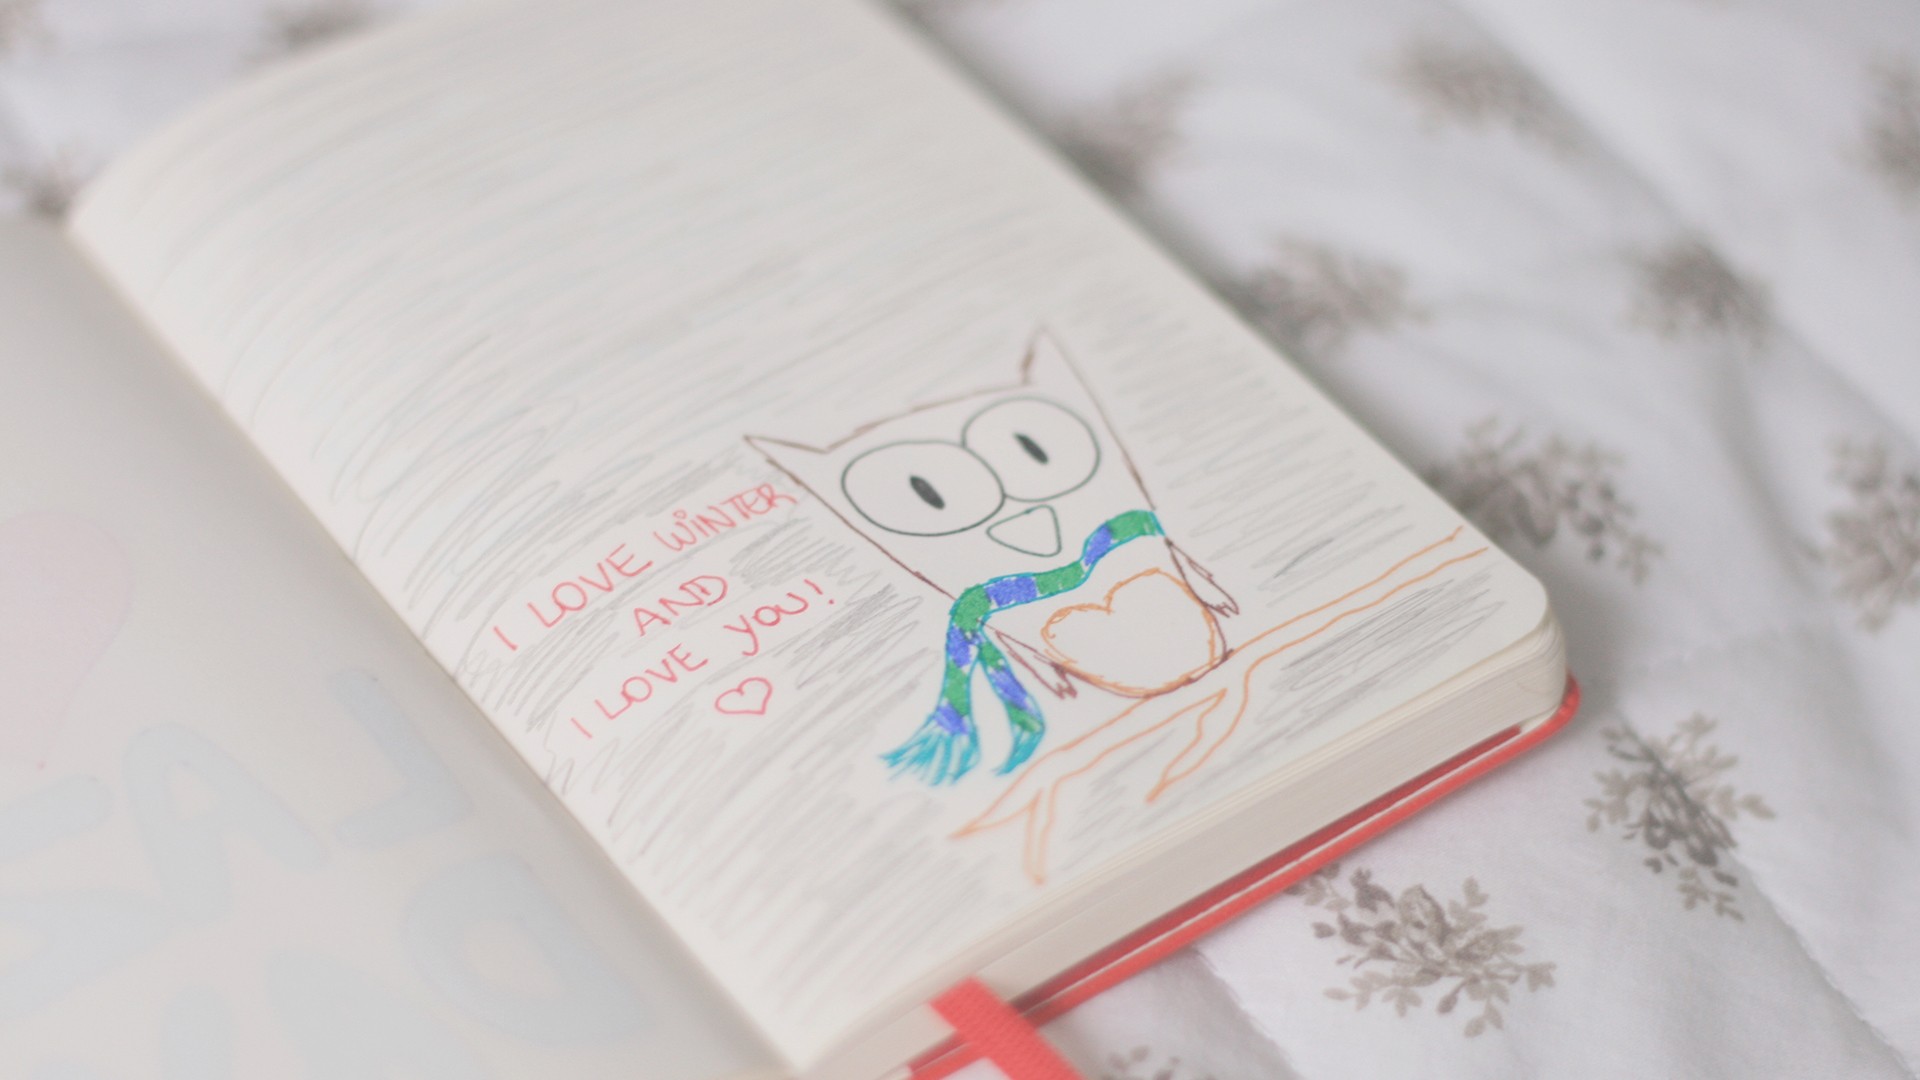 I LOVE WINTER
AND
I LOVE YOU!